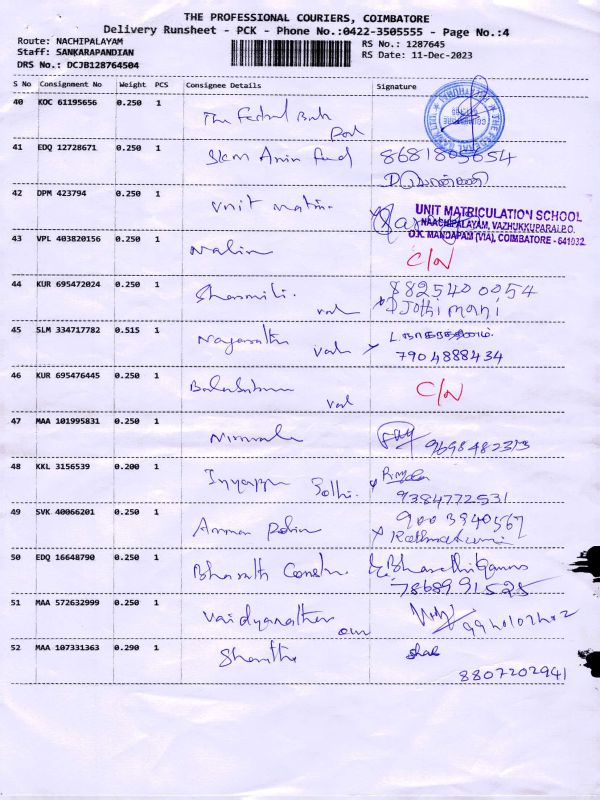 THE PROFESSIONAL COURIERS, COIMBATORE
Delivery Runsheet - PCK - Phone No.:0422-3505555 - Page No.:4
Route: NACHIPALAYAM
Staff: SANKARAPANDIAN
DRS No.: DCJB128764504
RS No.: 1287645
RS Date: 11-Dec-2023
S No Consignment No Weight PCS Consignee Details Signature
40 KOC 61195656 0.250 1 The Federal Bank
41 EDQ 12728671 0.250 1 8681805654
42 DPM 423794 0.250 1 Unit Matric.
UNIT MATRICULATION SCHOOL
NAACHIPALAYAM, VAZHUKKUPARAI P.O.
O.K. MANDAPAM (VIA), COIMBATORE - 641032
43 VPL 403820156 0.250 1 Nalin C/N
44 KUR 695472024 0.250 1 Sharmili. 8825400054
val Jothimani
45 SLM 334717782 0.515 1 val
7904888434
46 KUR 695476445 0.250 1 C/N
val
47 MAA 101995831 0.250 1 Nirmala 9698482313
48 KKL 3156539 0.200 1
9384772531
49 SVK 40066201 0.250 1 9003940567
50 EDQ 16648790 0.250 1 Bharath Constr.
7868991525
51 MAA 572632999 0.250 1 Vaidyanathan
52 MAA 107331363 0.290 1 Shantha
8807202941